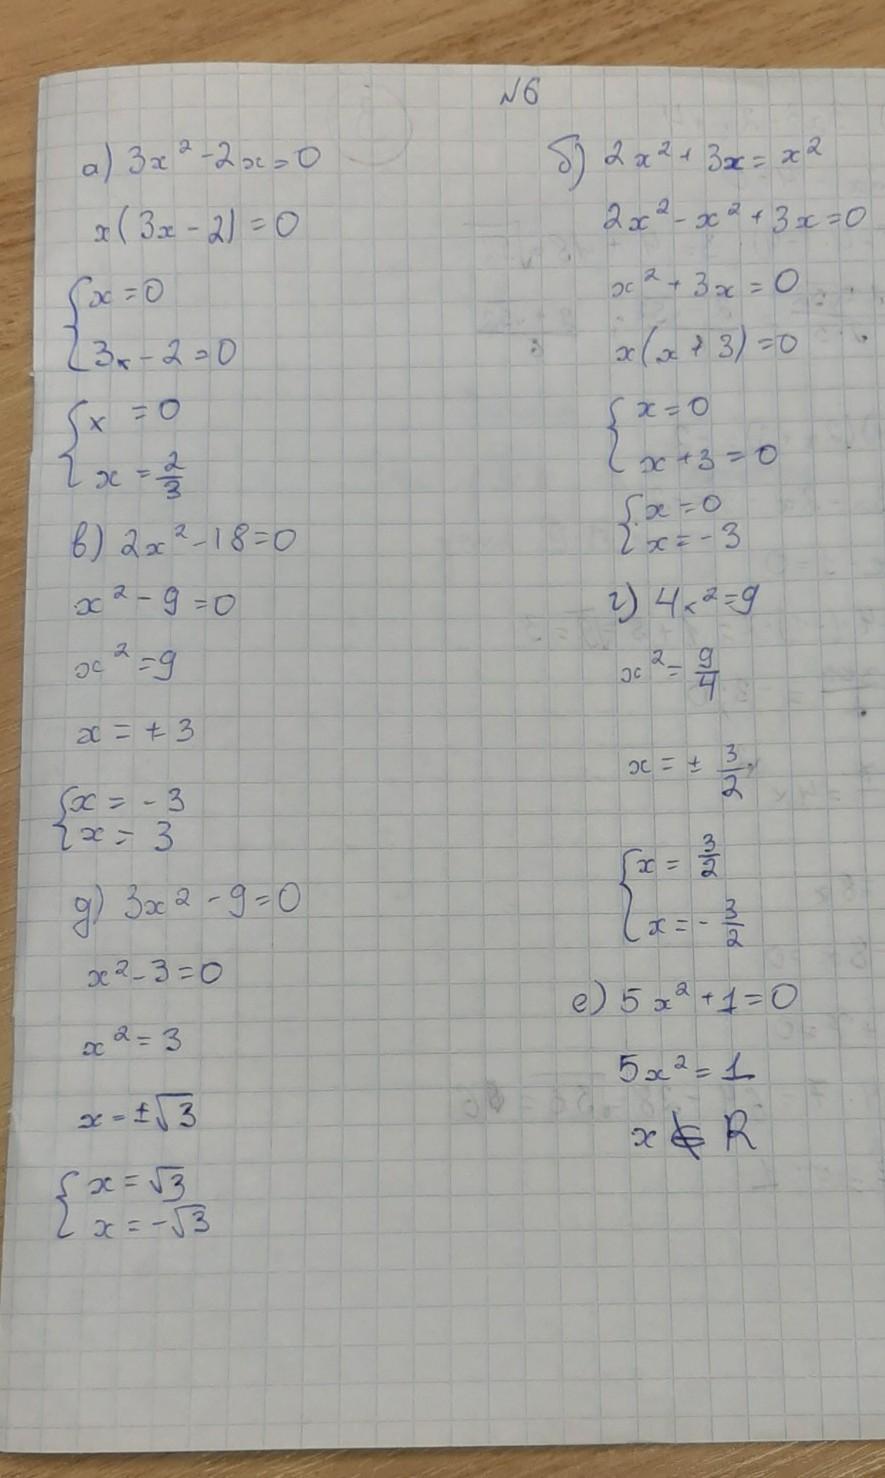 №6
а) 3x² - 2x = 0
x(3x - 2) = 0
{ x = 0
{ 3x - 2 = 0
{ x = 0
{ x = 2/3
в) 2x² - 18 = 0
x² - 9 = 0
x² = 9
x = ± 3
{ x = - 3
{ x = 3
д) 3x² - 9 = 0
x² - 3 = 0
x² = 3
x = ±√3
{ x = √3
{ x = -√3
б) 2x² + 3x = x²
2x² - x² + 3x = 0
x² + 3x = 0
x(x + 3) = 0
{ x = 0
{ x + 3 = 0
{ x = 0
{ x = - 3
г) 4x² = 9
x² = 9/4
x = ± 3/2
{ x = 3/2
{ x = - 3/2
е) 5x² + 1 = 0
5x² = 1
x ∉ R